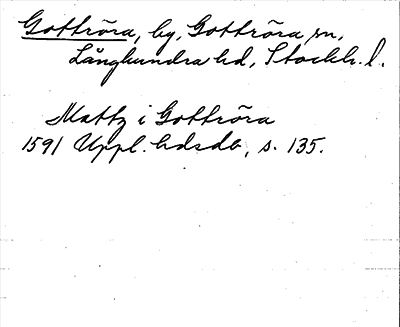 Gottröra, by, Gottröra sn,
Långhundra hd, Stockh. l.
Mattz i Gottröra
1591 Uppl. hdsdb, s. 135.